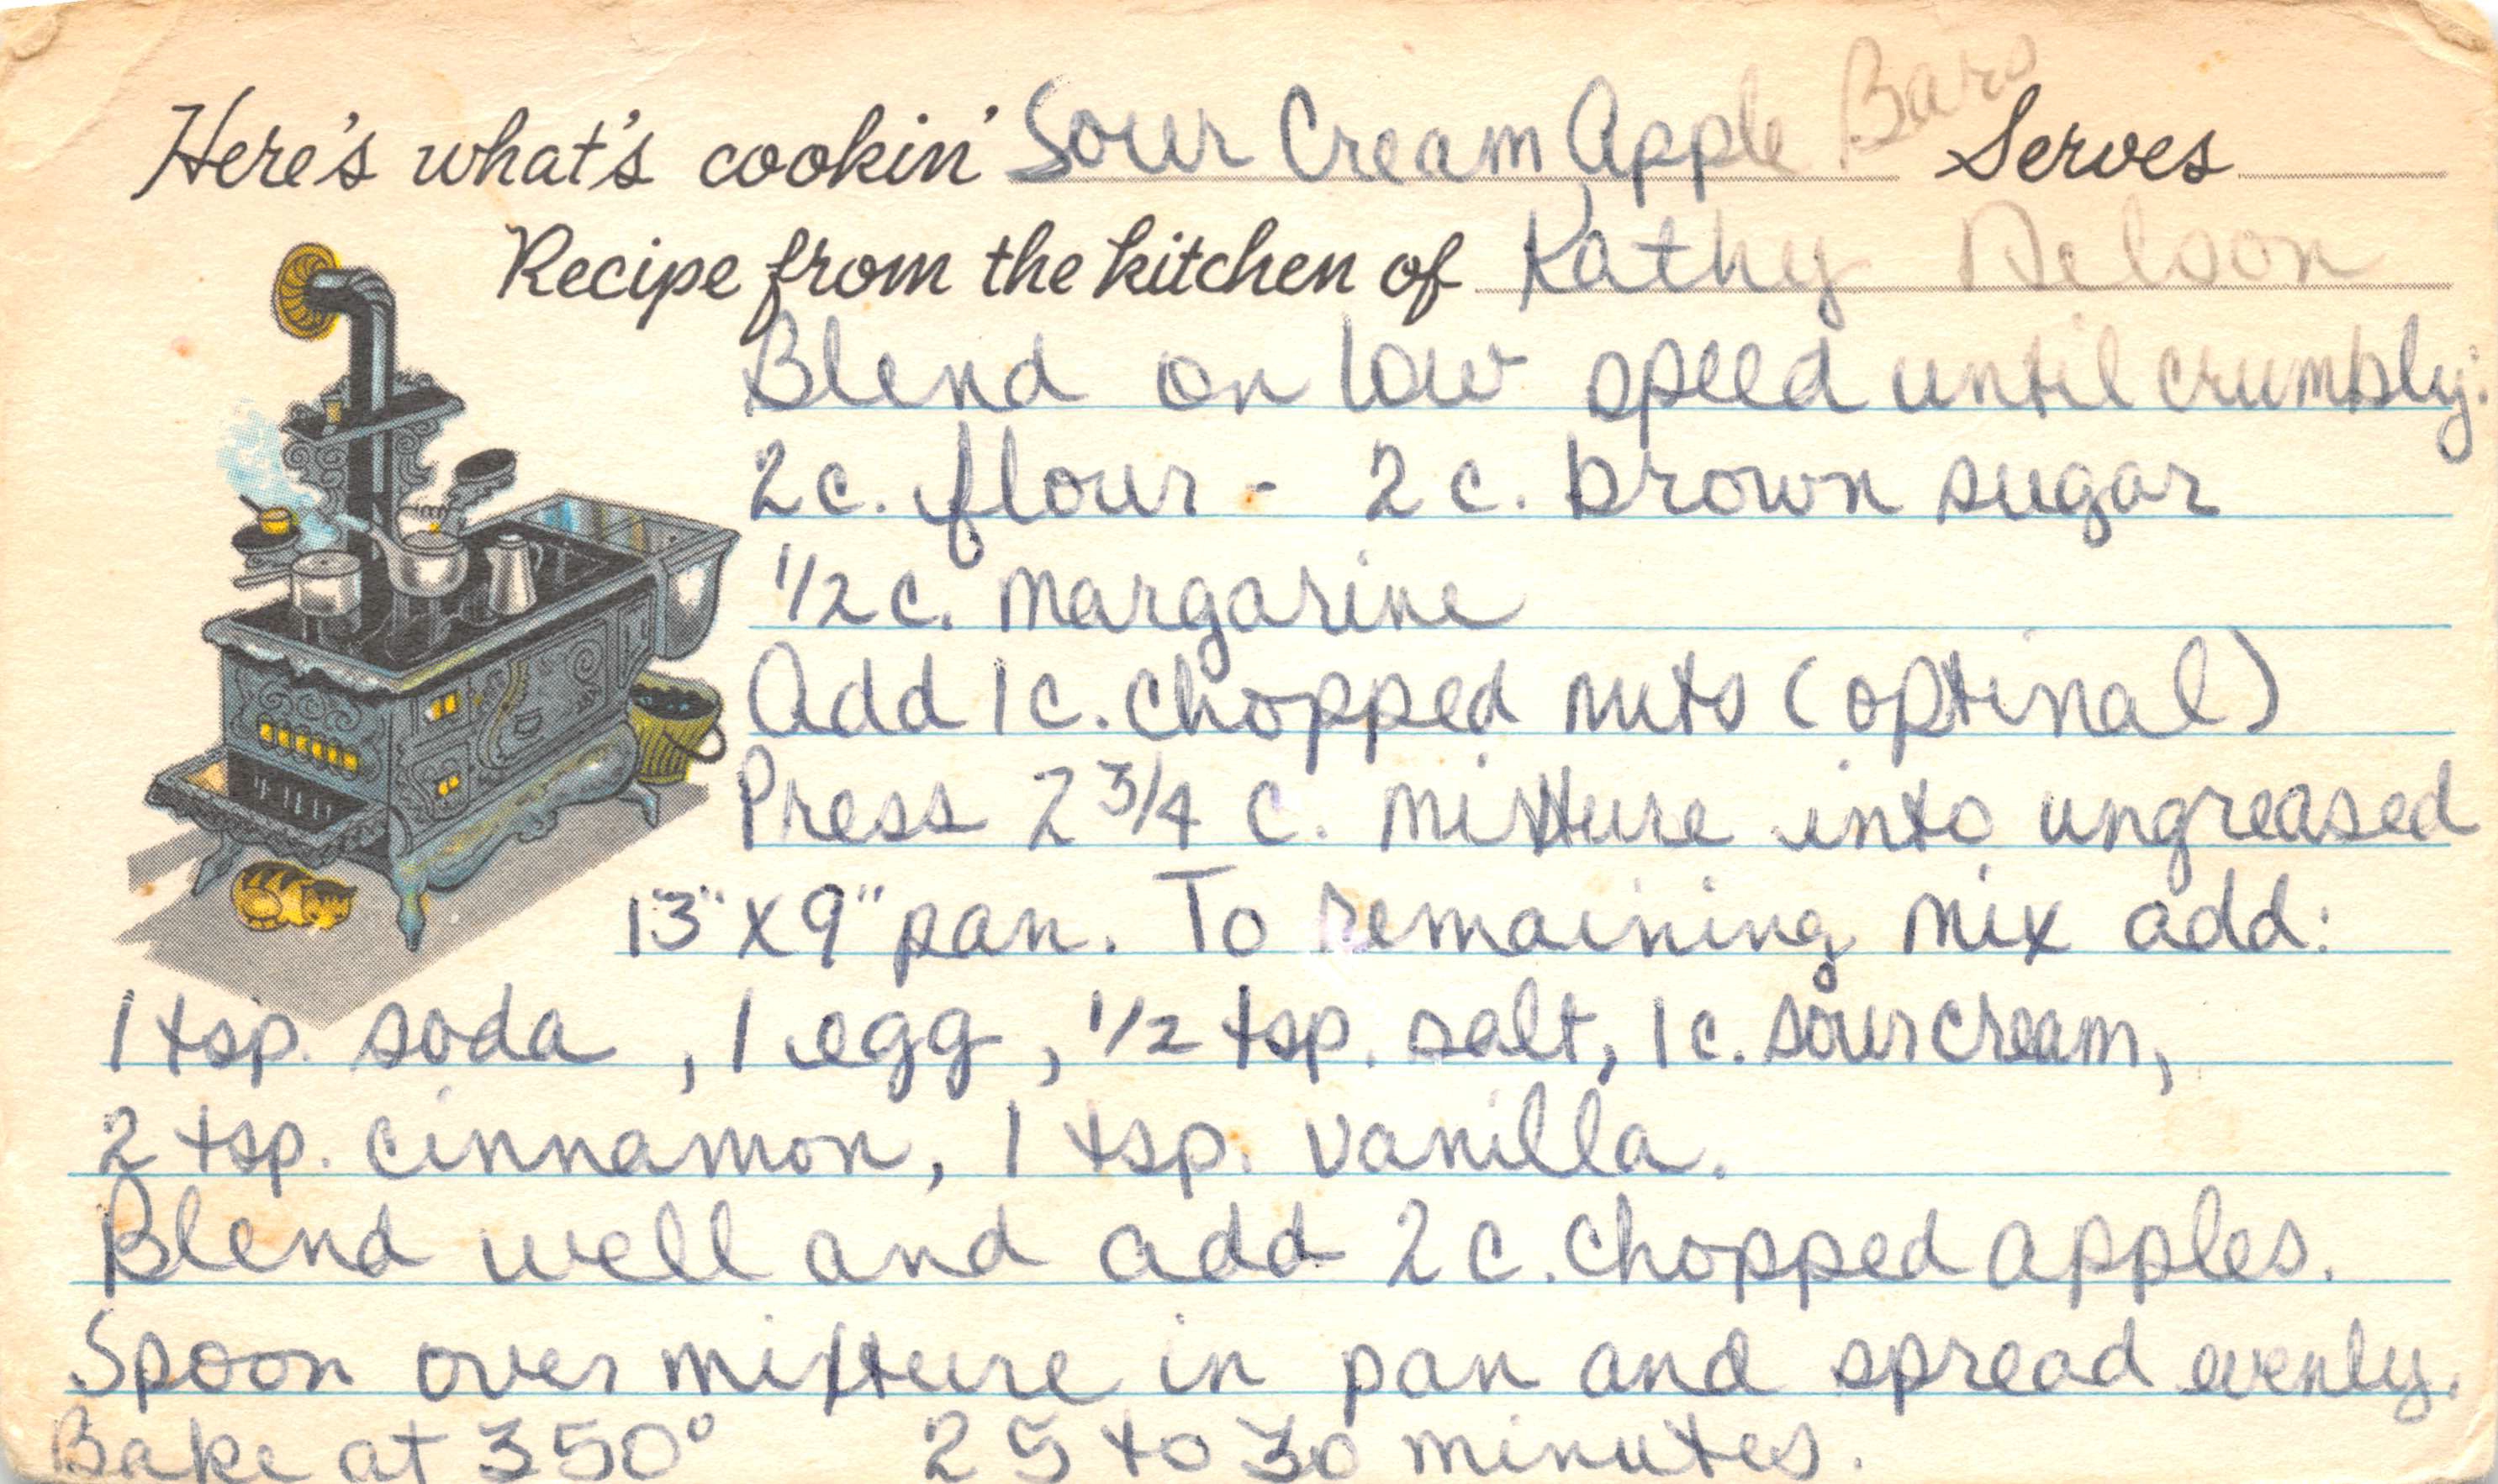 Here's what's cookin' Sour Cream Apple Bars Serves
Recipe from the kitchen of Kathy Nelson
Blend on low speed until crumbly:
2 c. flour - 2 c. brown sugar
1/2 c. margarine
Add 1 c. chopped nuts (optinal)
Press 2 3/4 c. mixture into ungreased
13" x 9" pan. To remaining mix add:
1 tsp. soda, 1 egg, 1/2 tsp. salt, 1 c. sour cream,
2 tsp. cinnamon, 1 tsp. vanilla.
Blend well and add 2 c. chopped apples.
Spoon over mixture in pan and spread evenly.
Bake at 350° 25 to 30 minutes.